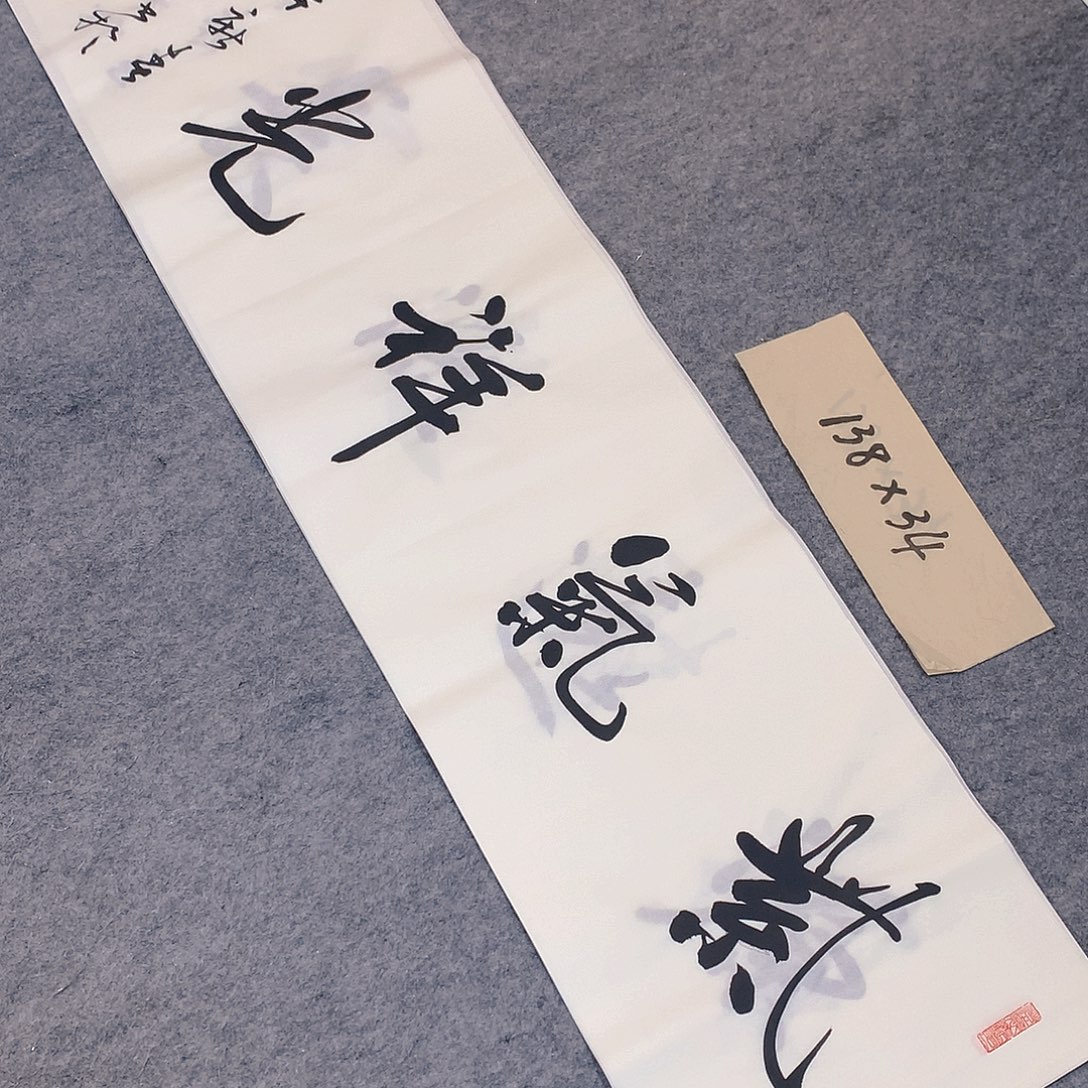 紫氣祥光
138×34